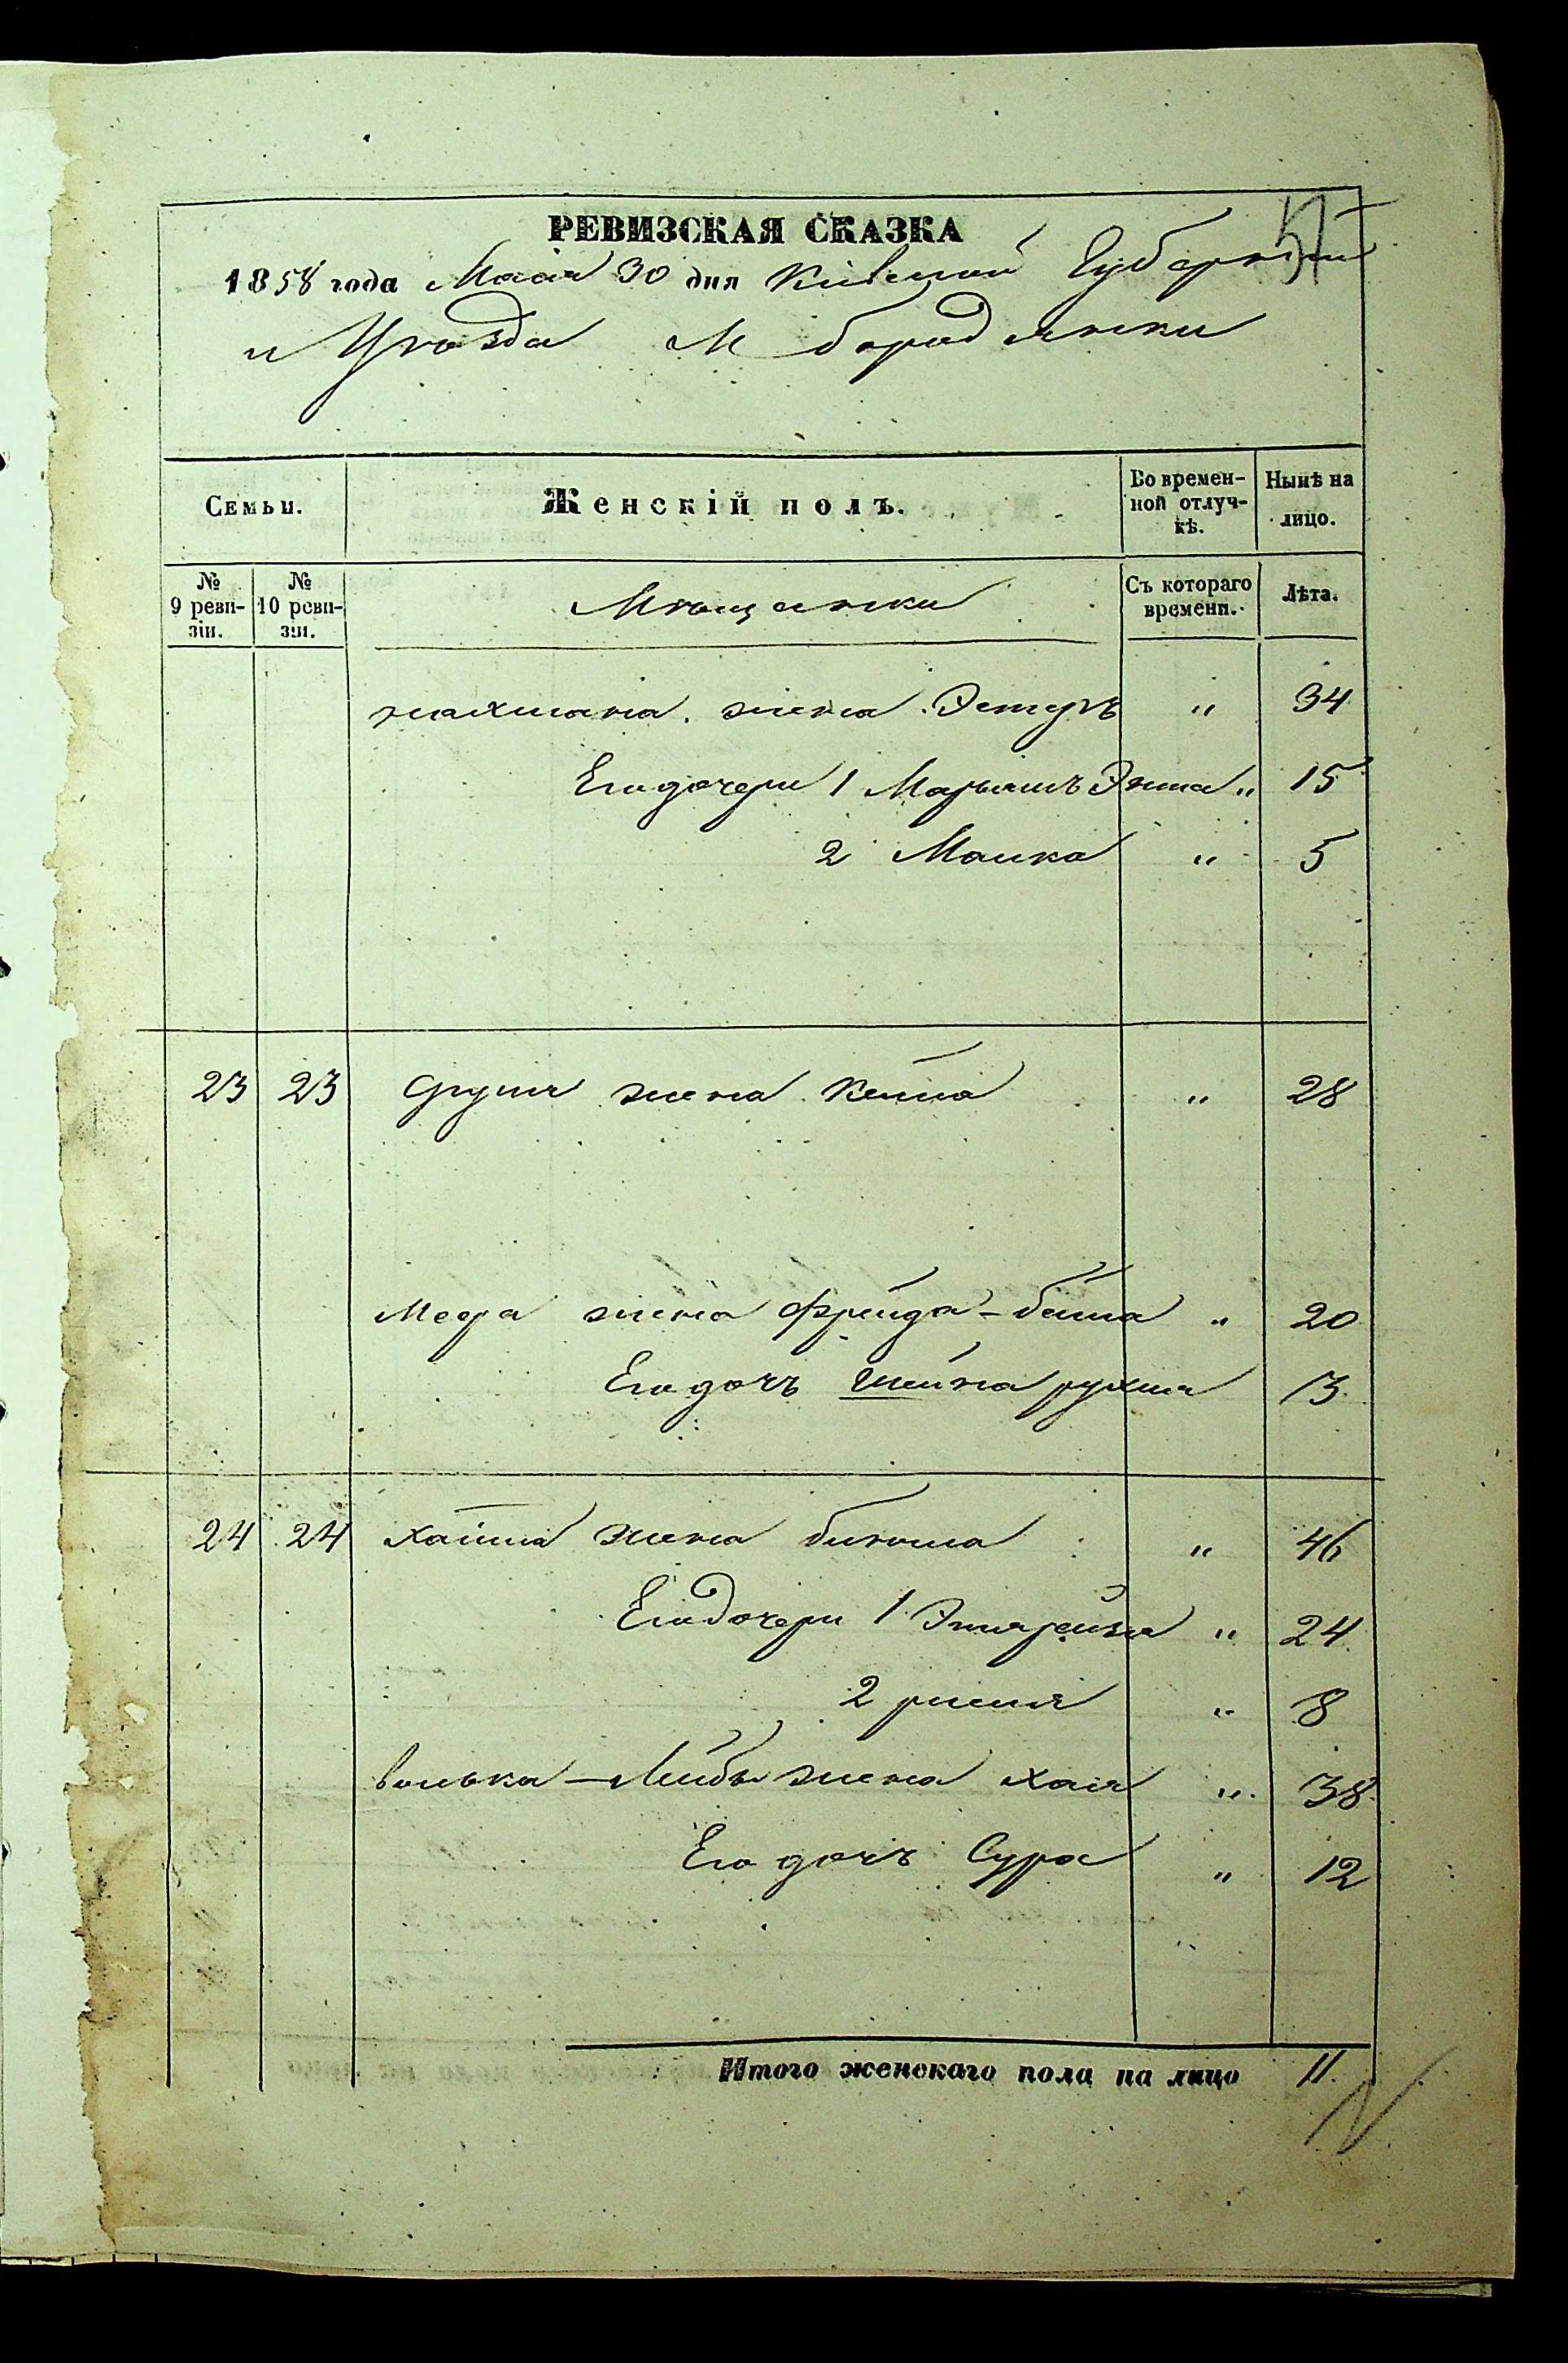 РЕВИЗСКАЯ СКАЗКА
1858 года Маия 30 дня Кіевской Губерніи
и Уѣзда М Бородянки
Семьи.
Женскій полъ.
Во времен-
ной отлуч-
кѣ.
Нынѣ на
лицо.
№
9 реви-
зіи.
№
10 реви-
зіи.
Мѣщанки
Съ котораго
времени.
Лѣта.
жена Эстеръ " 34
Его дочери 1 Марьямъ Энта " 15
2 Малка " 5
23 23 жена " 28
жена Фрейда-бейла " 20
Его дочь Шейна рухля 13
24 24 жена " 46
Его дочери 1 " 24
2 " 8
волька-Лейбы жена Хая " 38
Его дочь Сура " 12
Итого женскаго пола на лицо 11.